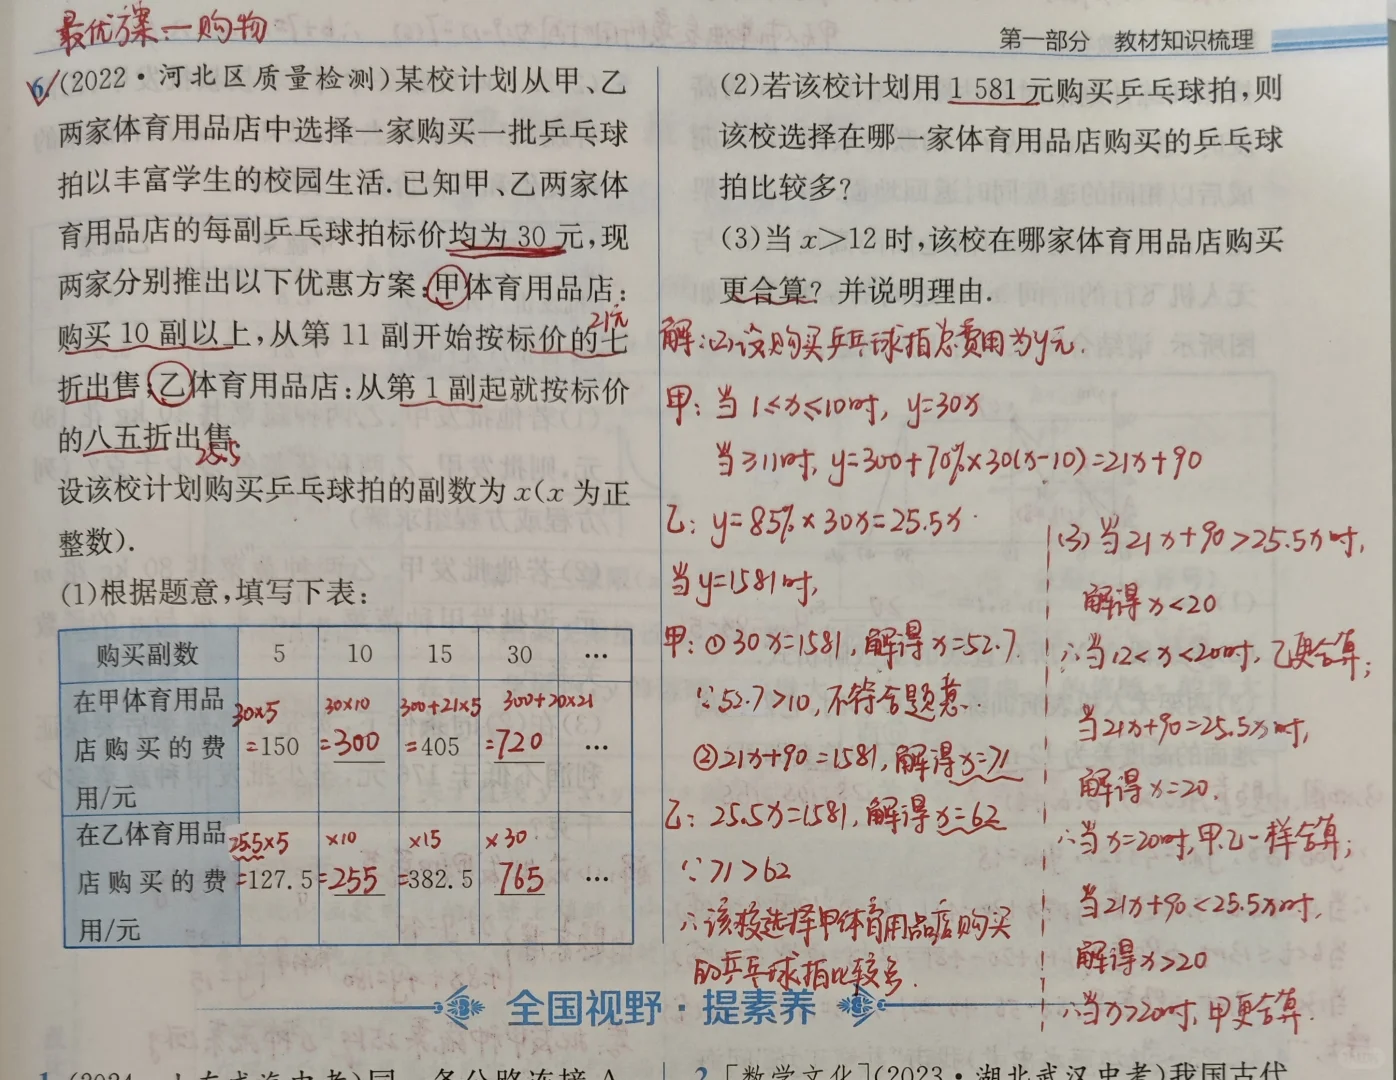 最优方案一购物
第一部分 教材知识梳理
6.(2022·河北区质量检测)某校计划从甲、乙
两家体育用品店中选择一家购买一批乒乓球
拍以丰富学生的校园生活.已知甲、乙两家体
育用品店的每副乒乓球拍标价均为30元,现
两家分别推出以下优惠方案:甲体育用品店:
21元
购买10副以上,从第11副开始按标价的七
折出售;乙体育用品店:从第1副起就按标价
的八五折出售.
25.5
设该校计划购买乒乓球拍的副数为x(x为正
整数).
(1)根据题意,填写下表:
购买副数 5 10 15 30 …
在甲体育用品 30×5 30×10 300+21×5 300+20×21
店购买的费 =150 =300 =405 =720 …
用/元
在乙体育用品 25.5×5 ×10 ×15 ×30
店购买的费 =127.5 =255 =382.5 765 …
用/元
(2)若该校计划用1 581元购买乒乓球拍,则
该校选择在哪一家体育用品店购买的乒乓球
拍比较多?
(3)当x>12时,该校在哪家体育用品店购买
更合算?并说明理由.
解:(2)设购买乒乓球拍总费用为y元.
甲:当1≤x≤10时,y=30x
当≥11时,y=300+70%×30(x-10)=21x+90
乙:y=85%×30x=25.5x.
当y=1581时,
甲:①30x=1581,解得x=52.7
∵52.7>10,不符合题意.
②21x+90=1581,解得x=71
乙:25.5x=1581,解得x=62
∵71>62
∴该校选择甲体育用品店购买
的乒乓球拍比较多.
(3)当21x+90>25.5x时,
解得x<20
∴当12<x<20时,乙更合算;
当21x+90=25.5x时,
解得x=20.
∴当x=20时,甲乙一样合算;
当21x+90<25.5x时,
解得x>20
∴当x>20时,甲更合算.
全国视野·提素养
2.[数学文化](2023·湖北武汉中考)我国古代